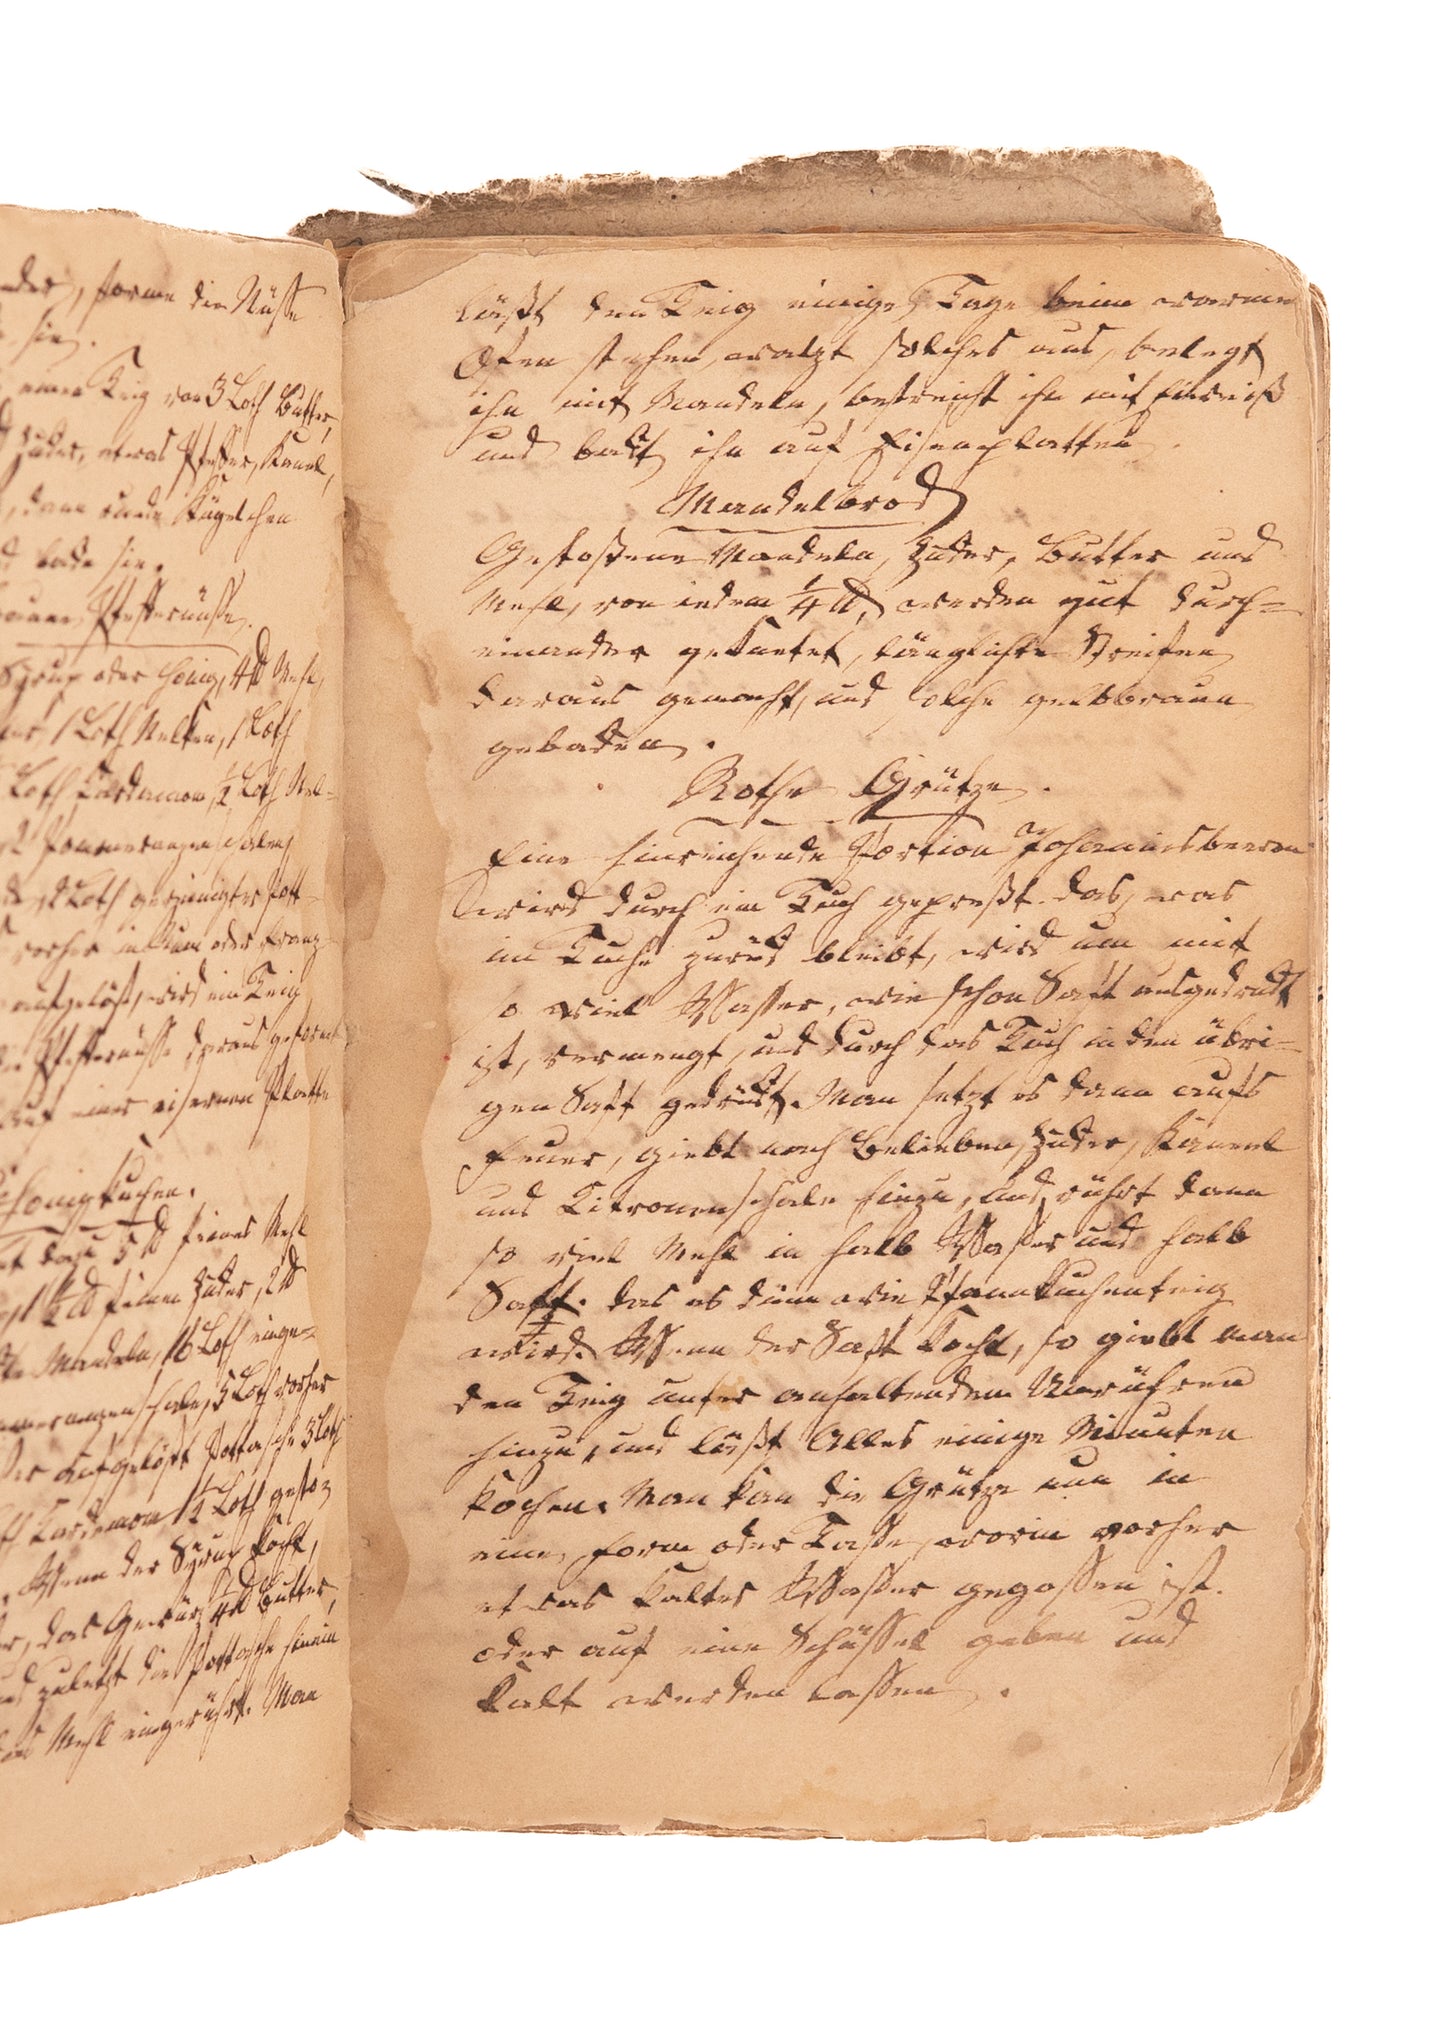 nder, forme die Nüsse
sie.
einen Teig von 3 Loth Butter,
Zucker, etwas Pfeffer, Kanel,
, dann runde Kügelchen
backe sie.
Pfeffernüsse.
Syrup oder Honig, 4 ℔ Mehl,
1 Loth Nelken, 1 Loth
Loth Cardemom, ½ Loth Nel-
Pommeranzenschalen,
2 Loth gereinigter Pott-
vorher in Rum oder Franz-
aufgelößt, wird ein Teig
Pfeffernüsse daraus geformt
auf einer eisernen Platte
Honigkuchen.
dazu 5 ℔ feines Mehl
1½ ℔ feinen Zucker, 2 ℔
Mandeln, 16 Loth einge-
schale, 5 Loth vorher
aufgelößte Pottasche 3 Loth
Cardemom 1½ Loth gestoz
Wenn der Syrup kocht,
das Gewürz ¼ ℔ Butter,
und zuletzt die Pottasche hinein
das Mehl eingerührt. Man
läßt den Teig einige Tage beim warmen
Ofen stehen, walzt solches aus, belegt
ihn mit Mandeln, bestreicht ihn mit Eierweiß
und backt ihn auf Eisenplatten.
Mandelbrod
Gestoßene Mandeln, Zucker, Butter und
Mehl, von jedem ¼ ℔, werden gut durch-
einander geknetet, länglichte Streifen
daraus gemacht, und solche gelbbraun
gebacken.
Rothe Grütze.
Eine hinreichende Portion Johannisbeeren
wird durch ein Tuch gepreßt. das, was
im Tuche zurück bleibt, wird nun mit
so viel Wasser, wie schon Saft ausgedrückt
ist, vermengt, und durch das Tuch in den übri-
gen Saft gedrückt. Man setzt es dann aufs
Feuer, giebt nach Belieben, Zucker, Kaneel
und Citronenschale hinzu, und rührt dann
so viel Mehl in halb Wasser und halb
Saft. das es dünn wie Pfannkuchenteig
wird. Wenn der Saft kocht, so giebt man
den Teig unter anhaltendem Umrühren
hinzu, und läßt Alles einige Minuten
kochen. Man kan die Grütze nun in
eine, Form oder Tasse, worin vorher
etwas kaltes Wasser gegossen ist.
oder auf eine Schüssel geben und
kalt werden lassen.